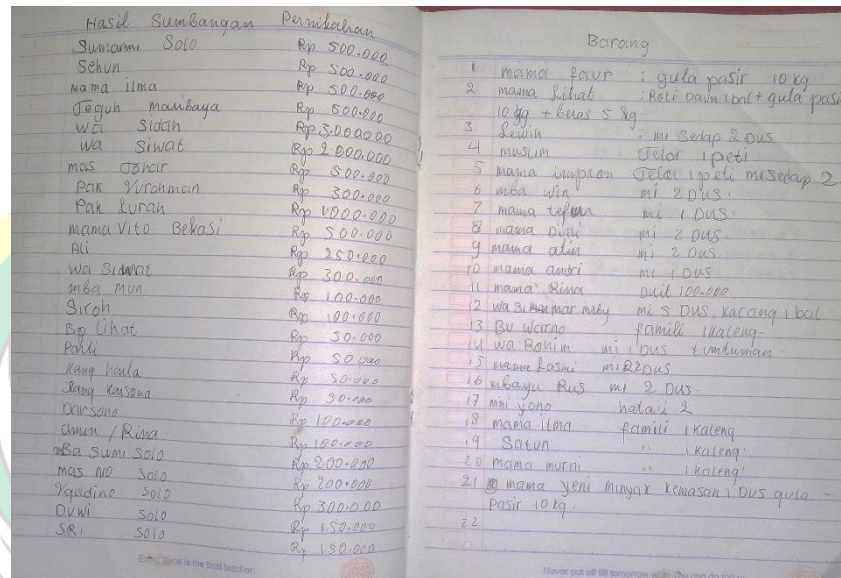 Hasil Sumbangan Pernikahan
Sumarmi Solo Rp 500.000
Sehun Rp 500.000
mama ilma Rp 500.000
Teguh maribaya Rp 500.000
wa Sidah Rp 3.000.000
wa Siwat Rp 2.000.000
mas Johar Rp 500.000
Pak Nurohman Rp 300.000
Pak Lurah Rp 1.000.000
mama Vito Bekasi Rp 500.000
Ali Rp 250.000
wa Rp 300.000
mba mun Rp 100.000
Siroh Rp 100.000
Bp Lihat Rp 50.000
Rp 50.000
Kang Rp 50.000
Kang Rp 50.000
Darsono Rp 100.000
/ Rina Rp 100.000
mBa Sumi Solo Rp 200.000
mas NO Solo Rp 200.000
Solo Rp 300.000
DUWi Solo Rp 150.000
SRi Solo Rp 150.000
is the best teacher
Barang
1 mama faur : gula pasir 10 kg
2 mama Lihat : Roti Daun 1 bal + gula pasi
10 kg + beras 5 kg
3 : mi Sedap 2 DUS
4 muslim Telor 1 peti
5 mama Telor 1 peti mi Sedap 2
6 mba win mi 2 DUS.
7 mama mi 1 DUS.
8 mama mi 2 DUS.
9 mama atin mi 2 DUS
10 mama andri mi 1 DUS
11 mama Rina Duit 100.000
12 wa mi 5 DUS, kacang 1 bal
13 Bu Warno famili 1 kaleng.
14 wa Rohim mi 1 DUS
15 mama mi 2 DUS
16 mbayu Rus mi 2 DUS.
17 yono 2
18 mama ilma famili 1 kaleng
19 Satun " 1 kaleng.
20 mama murni " 1 kaleng.
21 mama yeni minyak kemasan 1 DUS gula -
pasir 10 kg.
22
Never put off till tomorrow what you can do today